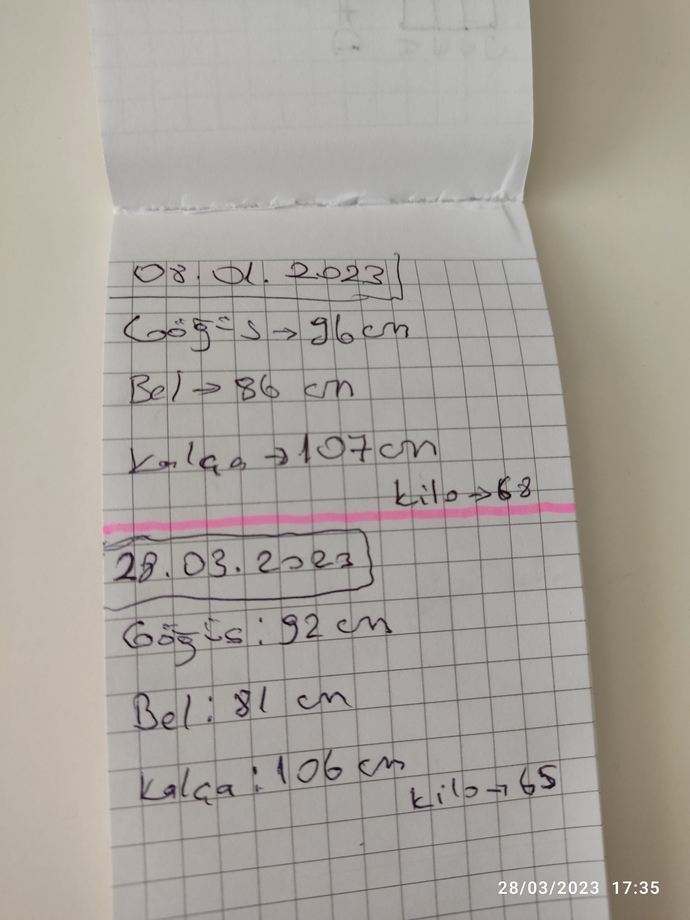 08.01.2023
Göğüs → 96 cm
Bel → 86 cm
Kalça → 107 cm
kilo → 68
28.03.2023
Göğüs : 92 cm
Bel : 81 cm
Kalça : 106 cm
kilo → 65
28/03/2023 17:35